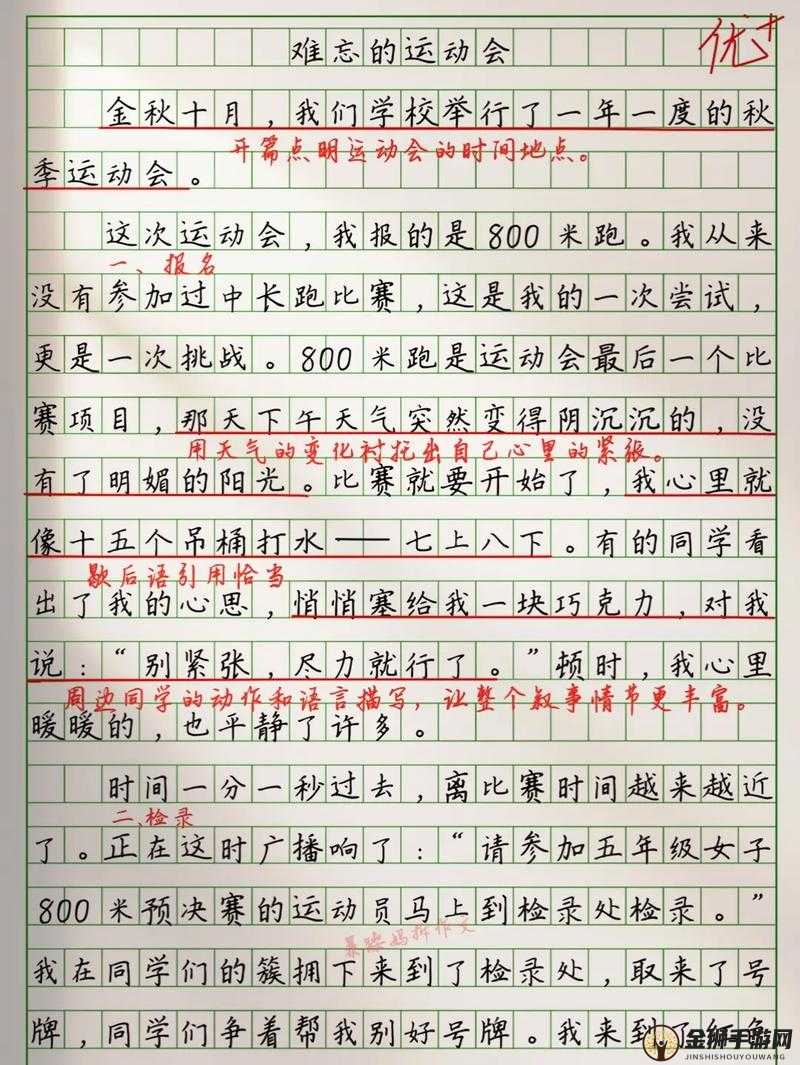 难忘的运动会
优+
金秋十月，我们学校举行了一年一度的秋
开篇点明运动会的时间地点。
季运动会。
这次运动会，我报的是800米跑。我从来
一、报名
没有参加过中长跑比赛，这是我的一次尝试，
更是一次挑战。800米跑是运动会最后一个比
赛项目，那天下午天气突然变得阴沉沉的，没
用天气的变化衬托出自己心里的紧张。
有了明媚的阳光。比赛就要开始了，我心里就
像十五个吊桶打水——七上八下。有的同学看
歇后语引用恰当
出了我的心思，悄悄塞给我一块巧克力，对我
说：“别紧张，尽力就行了。”顿时，我心里
周边同学的动作和语言描写，让整个叙事情节更丰富。
暖暖的，也平静了许多。
时间一分一秒过去，离比赛时间越来越近
二、检录
了。正在这时广播响了：“请参加五年级女子
800米预决赛的运动员马上到检录处检录。”
我在同学们的簇拥下来到了检录处，取来了号
牌，同学们争着帮我别好号牌。我来到了
金狮手游网
JINSHISHOUYOUWANG